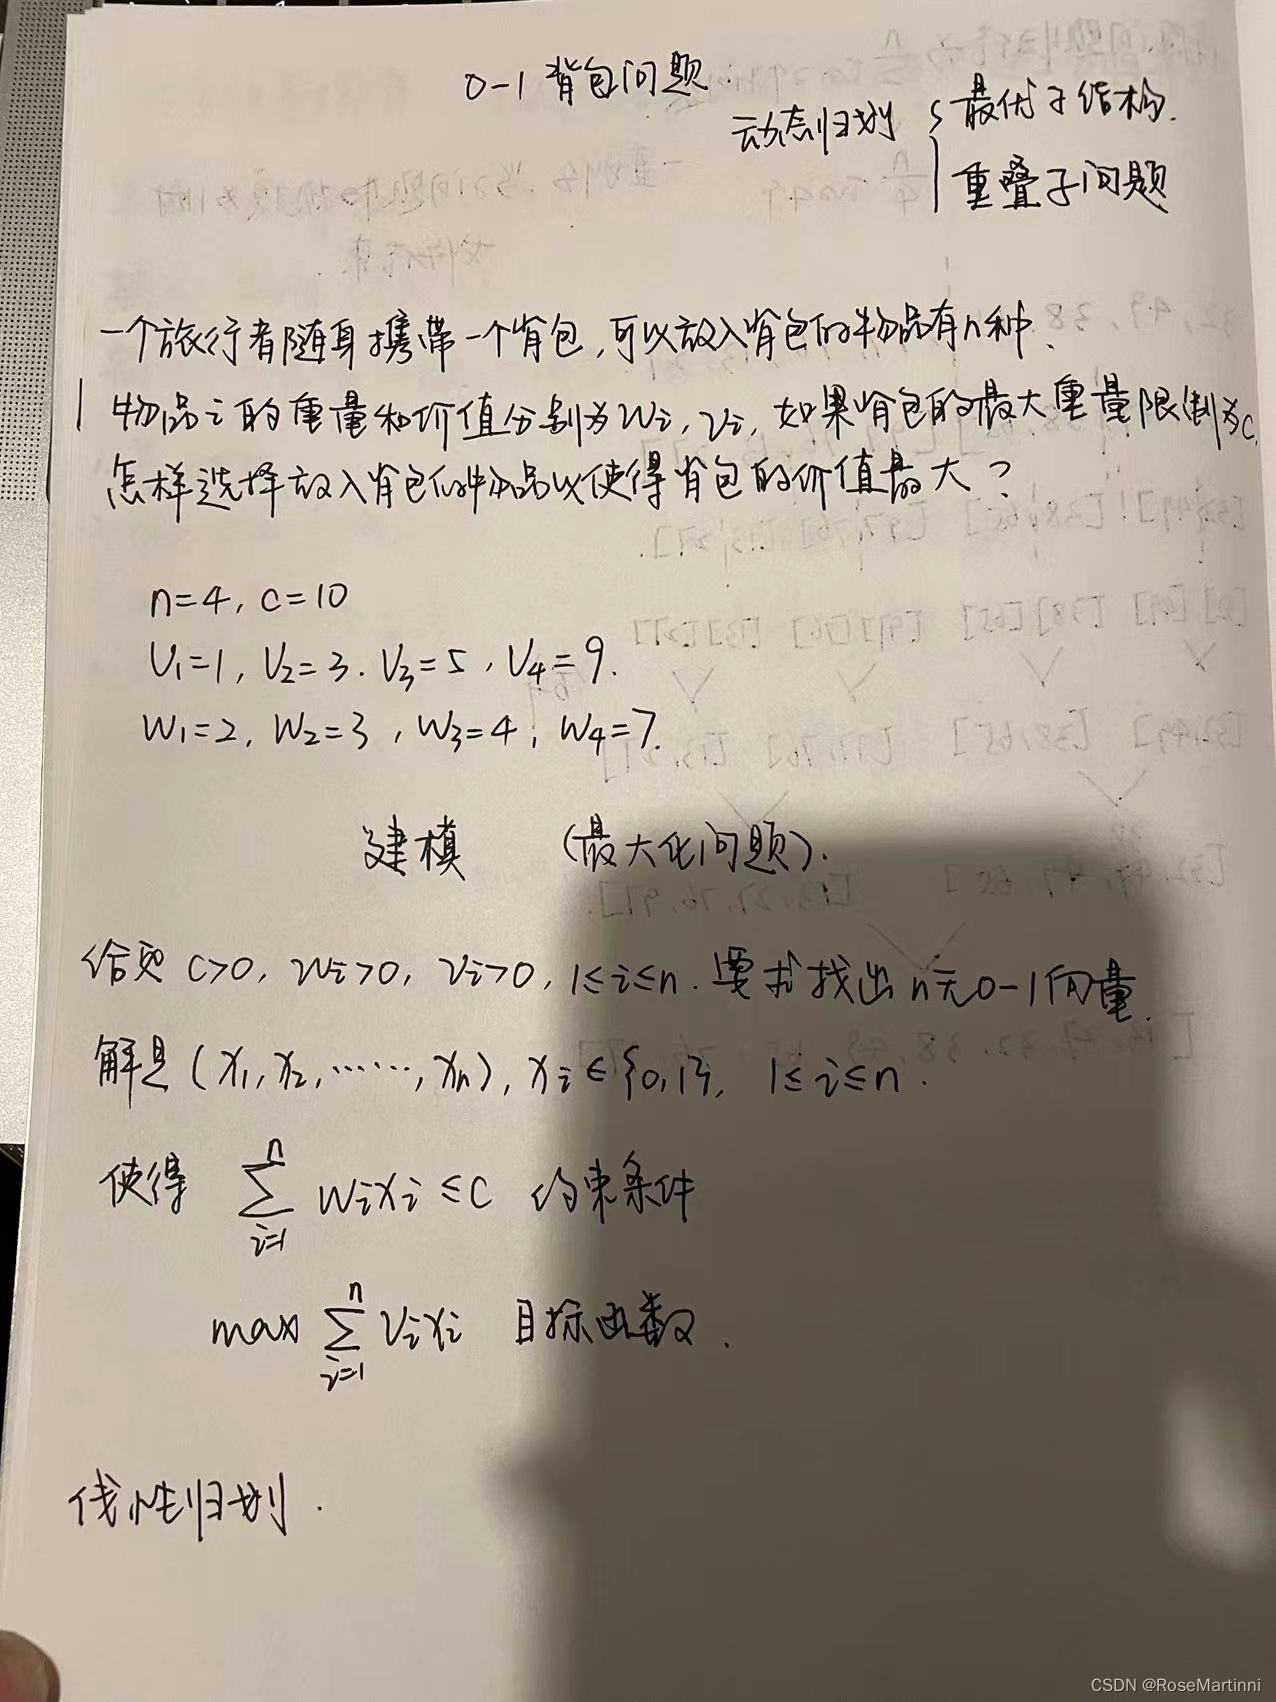 0-1 背包问题
动态归划 { 最优子结构.
重叠子问题
一个旅行者随身携带一个背包,可以放入背包的物品有n种.
物品i的重量和价值分别为Wi, Vi, 如果背包的最大重量限制为C.
怎样选择放入背包的物品以使得背包的价值最大?
n=4, c=10
V₁=1, V₂=3. V₃=5, V₄=9.
W₁=2, W₂=3, W₃=4, W₄=7.
建模 (最大化问题).
给定 C>0, Wi>0, Vi>0, 1≤i≤n. 要求找出n元0-1向量.
解是(X₁, X₂, ……, Xn), Xi∈{0,1}, 1≤i≤n.
使得 ∑ⁿᵢ₌₁ WiXi ≤ C 约束条件
max ∑ⁿᵢ₌₁ ViXi 目标函数.
性归划.
CSDN @RoseMartinni